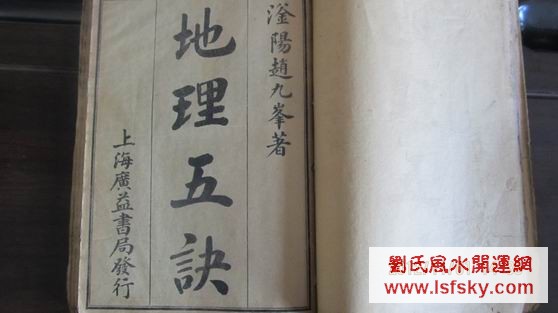 滏陽趙九峯著
地理五訣
上海廣益書局發行
劉氏風水開運網
www.lsfsky.com